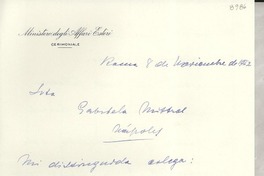 8986
Ministero degli Affari Esteri
CERIMONIALE
Roma 8 de Noviembre de 1952
Srta
Gabriela Mistral
Nápoles
Mi distinguida colega: